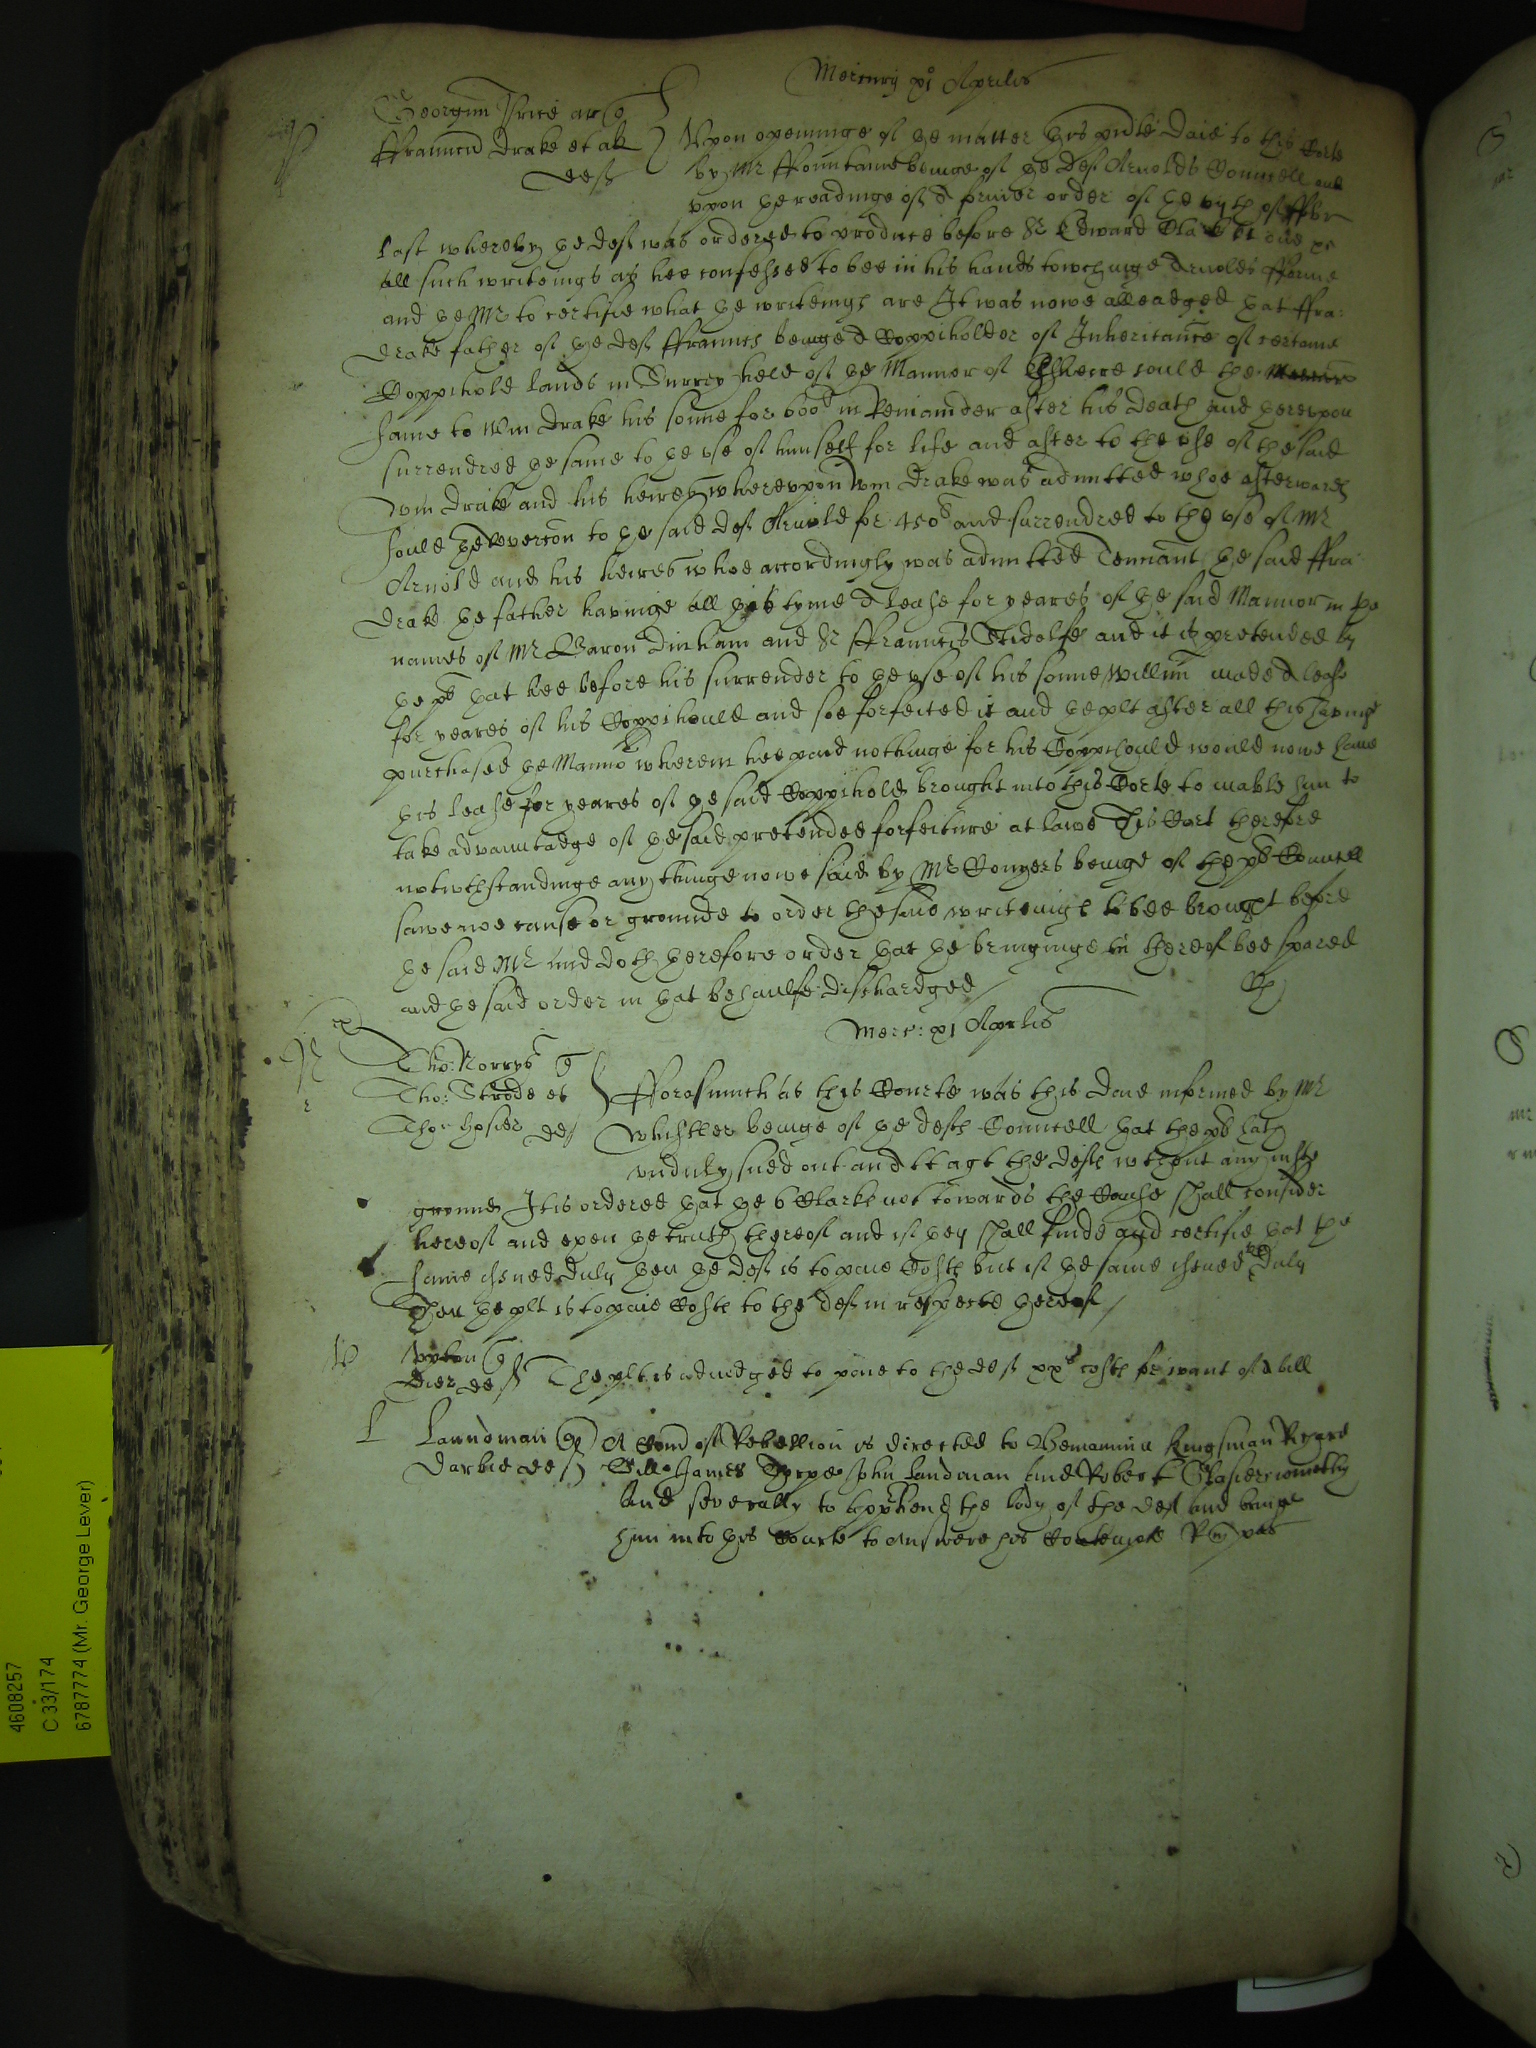 Mercurij xi° Aprilis
P
Georgius Price ar q
Franncu Drake et al
deftes
Upon openinge of ye matter this pnte Daie to this Corte
by Mr Fountaine beinge of ye Deft Arnolds Councell and
upon ye readinge of a former order of ye vijth of Febr
last whereby ye deft was ordered to produce before Sr Edward Clarke
all such writeings as hee confessed to bee in his hands towchinge Arnolds
and ye Mr to certifie what ye writeings are It was nowe alleadged yat ffra:
Drake father of ye deft ffranncis beinge a Coppiholder of Inheritance of certaine
Coppihold lands in Surrey held of ye Mannor of sould the
same to Wm Drake his sonne for 600l in Remainder after his Death and yereupon
surrendred ye same to ye use of himself for life and after to the use of the said
Wm Drake and his heires whereupon Wm Drake was admitted whoe afterwards
sould ye Revercon to ye said deft Arnold for 450l and surrendred to the use of Mr
Arnold and his heires whoe accordingly was admitted Tennant ye said ffra:
Drake ye father havinge all yis tyme a lease for yeares of ye said Mannor in ye
names of Mr Baron Dinham and Sr ffranncis Stidolfe and it is pretended by
ye plt yat hee before his surrender to ye use of his sonne Willm made a lease
for yeares of his Coppihould and soe forfeited it and ye plt after all this havinge
purchased ye Mannor wherein hee paid nothinge for his Coppihould would nowe have
his lease for yeares of ye said Coppihold brought into this Corte to inable him to
take advauntadge of ye said pretended forfeiture at lawe This Cort therefore
notwthstandinge any thinge nowe said by Mr Conyers beinge of the plts Councell
sawe noe cause or grounde to order the said writeings to bee brought before
ye said Mr and doth yerefore order yat ye bringinge in thereof bee spared
and ye said order in yat behaulfe dischardged
Merc: xi Aprilis
N
Tho: Norrys q
Tho: Strode et
Tho: Hosier def
Fforasmuch as this Courte was this Daie informed by Mr
Whistler beinge of ye defts Councell yat the plt hath
unduly sued out and att agt the defts without any juste
grounde It is ordered yat ye 6 Clarks not towards the Cause shall consider
hereof and upon ye truth thereof and if yey shall finde and certifie yat the
same issued Duly yen ye deft is to paie Costs but if ye same issued Duly
Then ye plt is to paie Costs to the deft in respecte yereof
Upton q
Dier def
The plt is adiudged to paie to the deft xxs costs for want of a bill
L
Laundman q
Darbie def
A Comd of Rebellion is directed to Beniamin Kingsman Richard
Will James Thorpe John Landman and Robert Glasier ioinctly
and severally to apphend the body of the deft and bringe
him into this Courte to answere his Contempte
4608257
C 33/174
6787774 (Mr. George Lever)